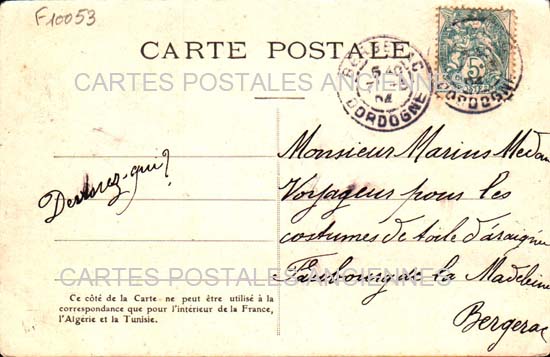 F10053
CARTE POSTALE
BERGERAC
DORDOGNE
5
04
CARTES POSTALES ANCIENNES
Monsieur Marius
Voyageur pour les
costumes de toile d'araignée
Faubourg de la Madeleine
Bergerac
Devinez-qui?
CARTES POSTALES ANCIENNES
Ce côté de la Carte ne peut être utilisé à la
correspondance que pour l'intérieur de la France,
l'Algérie et la Tunisie.